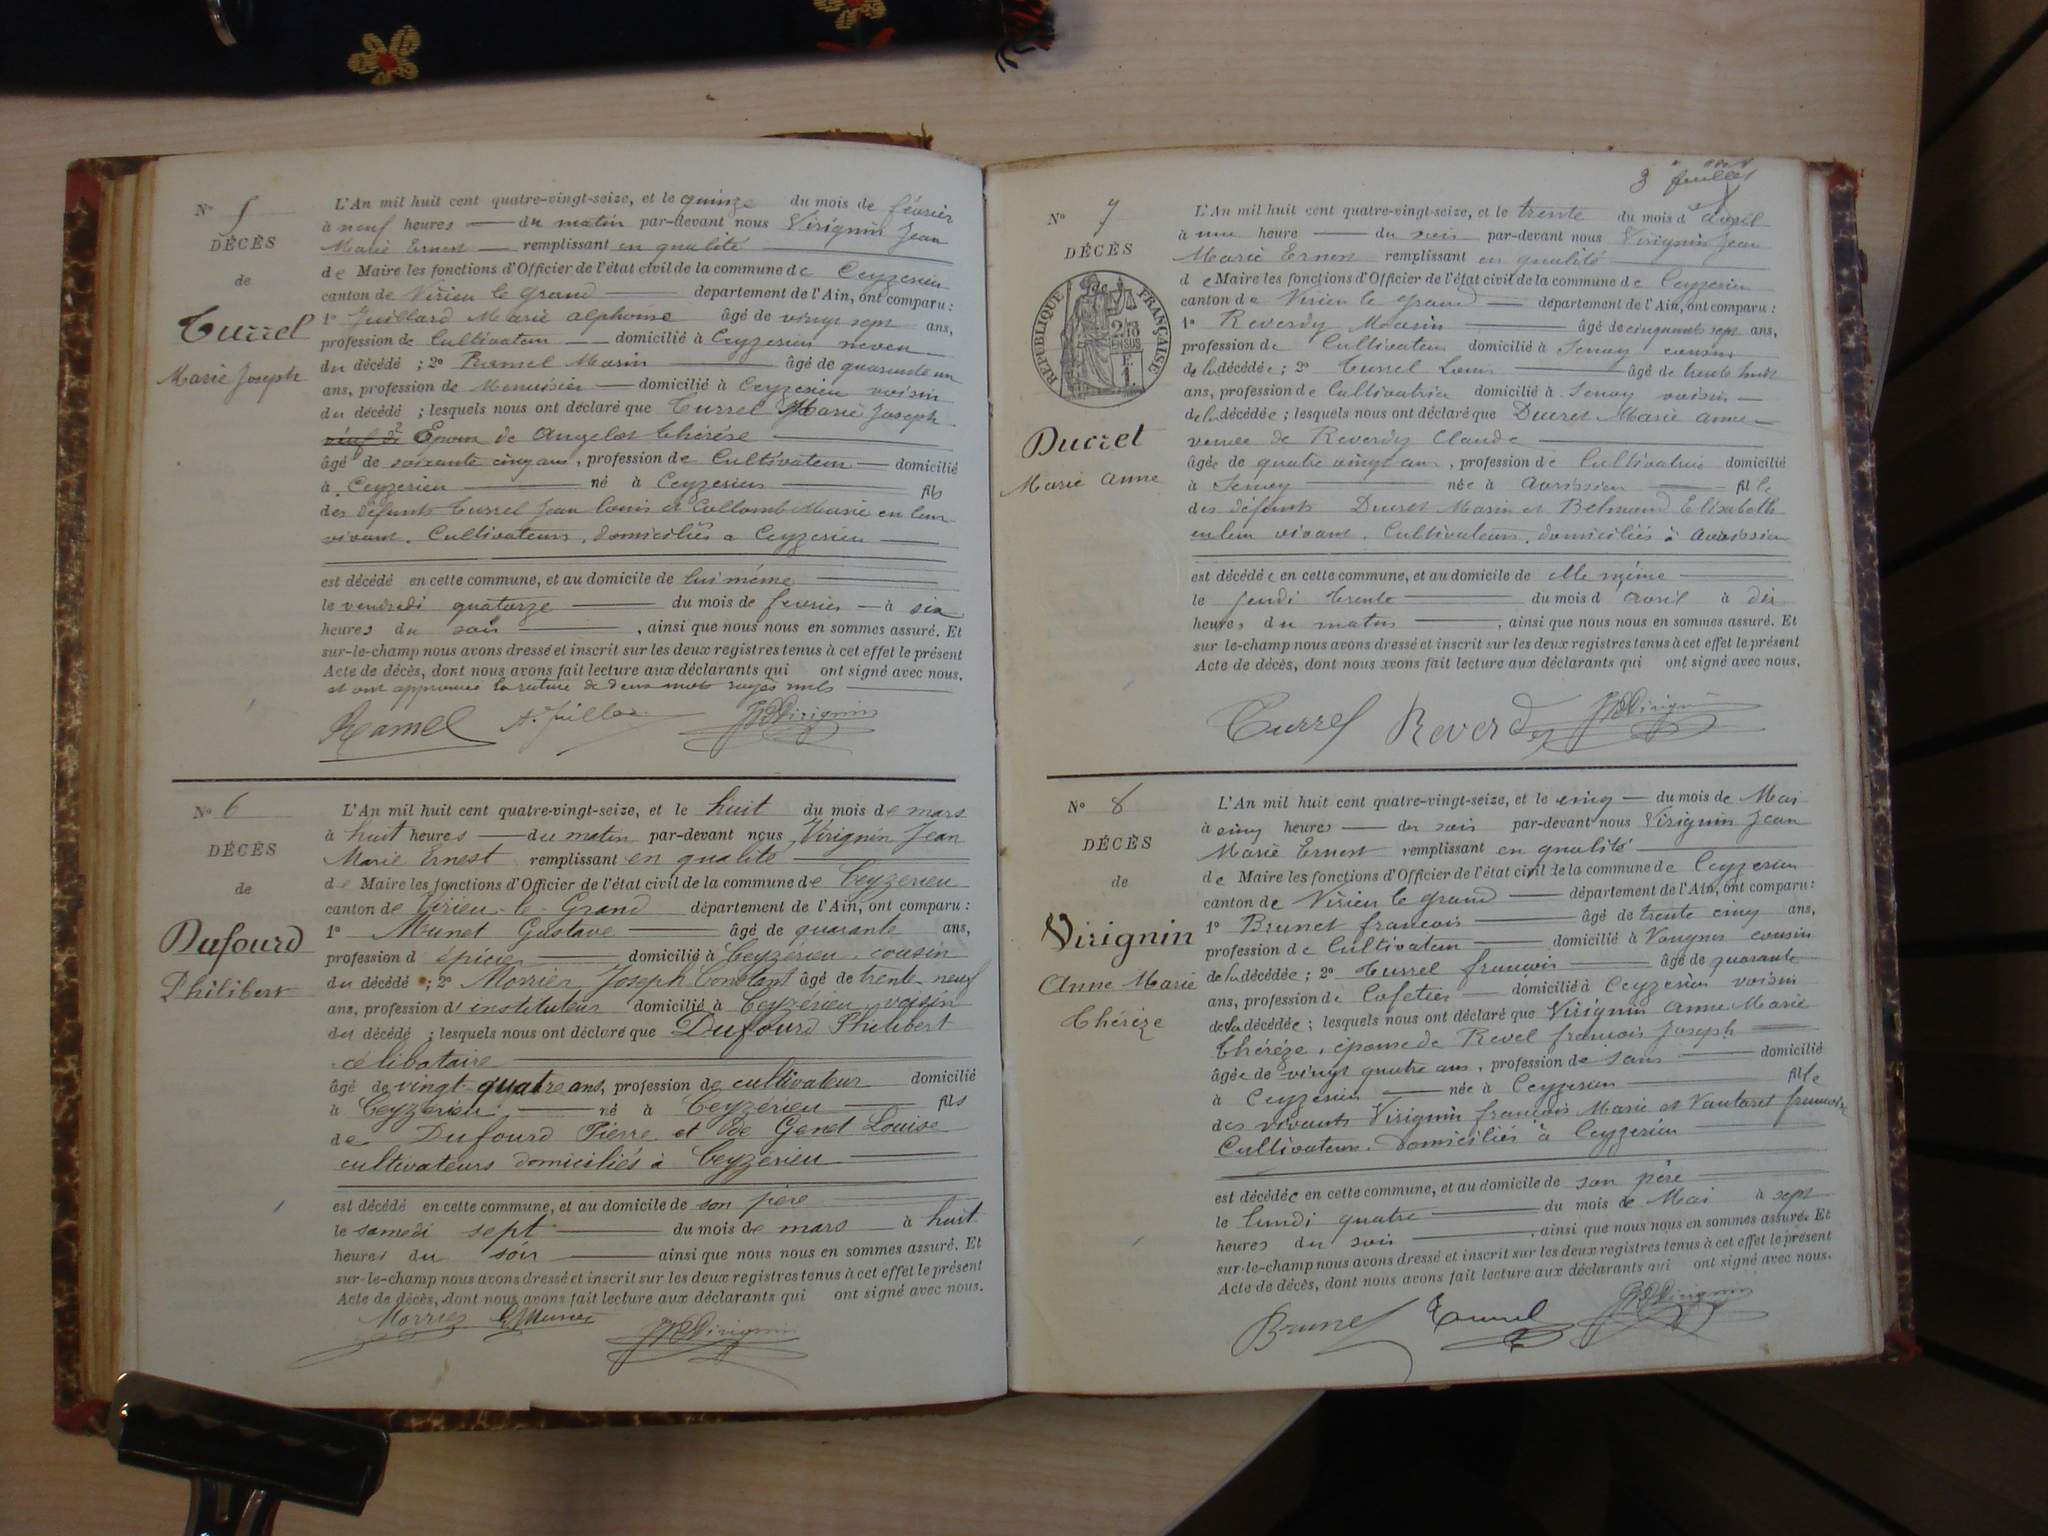 N° 5
DÉCÈS
de
Turrel
Marie Joseph
L'An mil huit cent quatre-vingt-seize, et le quinze du mois de février
à neuf heures du matin par-devant nous Virignin Jean
Marie Ernest remplissant en qualité
de Maire les fonctions d'Officier de l'état civil de la commune de Ceyzerieu
canton de Virieu le grand département de l'Ain, ont comparu :
1° Juillard Marie alphonse âgé de vingt sept ans,
profession de Cultivateur domicilié à Ceyzerieu neveu
du décédé ; 2° Ramel Marin âgé de quarante un
ans, profession de Menuisier domicilié à Ceyzerieu voisin
du décédé ; lesquels nous ont déclaré que Turrel Marie Joseph
Epoux de Angelot thérèse
âgé de soixante cinq ans, profession de Cultivateur domicilié
à Ceyzerieu né à Ceyzerieu fils
des défunts Turrel Jean Louis et Collomb Marie en leur
vivant. Cultivateurs, domiciliés a Ceyzerieu
est décédé en cette commune, et au domicile de lui même
le vendredi quatorze du mois de fevrier à six
heures du soir, ainsi que nous nous en sommes assuré. Et
sur-le-champ nous avons dressé et inscrit sur les deux registres tenus à cet effet le présent
Acte de décès, dont nous avons fait lecture aux déclarants qui ont signé avec nous.
et ont approuvés la rature de deux mots rayés nuls
Ramel A. Juillar JM Virignin
N° 6
DÉCÈS
de
Dufourd
Philibert
L'An mil huit cent quatre-vingt-seize, et le huit du mois de mars
à huit heures du matin par-devant nous Virignin Jean
Marie Ernest remplissant en qualité
de Maire les fonctions d'Officier de l'état civil de la commune de Ceyzerieu
canton de Virieu-le-Grand département de l'Ain, ont comparu :
1° Munet Gustave âgé de quarante ans,
profession d'épicier domicilié à Ceyzérieu, cousin
du décédé ; 2° Morrier Joseph Constant âgé de trente-neuf
ans, profession d'instituteur domicilié à Ceyzérieu, voisin
du décédé ; lesquels nous ont déclaré que Dufourd Philibert
célibataire
âgé de vingt-quatre ans, profession de cultivateur domicilié
à Ceyzérieu né à Ceyzérieu fils
de Dufourd Pierre et de Genet Louise
cultivateurs domiciliés à Ceyzérieu
est décédé en cette commune, et au domicile de son père
le samedi sept du mois de mars à huit
heures du soir ainsi que nous nous en sommes assuré. Et
sur-le-champ nous avons dressé et inscrit sur les deux registres tenus à cet effet le présent
Acte de décès, dont nous avons fait lecture aux déclarants qui ont signé avec nous.
Morrier G Munet Virignin
3e feuillet
N° 7
DÉCÈS
de
RÉPUBLIQUE FRANÇAISE
Ducret
Marie Anne
L'An mil huit cent quatre-vingt-seize, et le trente du mois d'avril
à une heure du soir par-devant nous Virignin Jean
Marie Ernest remplissant en qualité
de Maire les fonctions d'Officier de l'état civil de la commune de Ceyzerieu
canton de Virieu le grand département de l'Ain, ont comparu :
1° Reverdy Marin âgé de cinquante sept ans,
profession de Cultivateur domicilié à Senoy cousin
de la décédée ; 2° Turrel Louis âgé de trente huit
ans, profession de Cultivatrice domicilié à Senoy voisin
de la décédée ; lesquels nous ont déclaré que Ducret Marie anne
veuve de Reverdy Claude
âgée de quatre vingt ans, profession de Cultivatrice domicilié
à Senoy née à Avrissieu fille
des défunts Ducret Marin et Elisabeth
en leur vivant. Cultivateurs, domiciliés à Avrissieu
est décédée en cette commune, et au domicile de elle même
le jeudi trente du mois d'avril à dix
heures du matin, ainsi que nous nous en sommes assuré. Et
sur-le-champ nous avons dressé et inscrit sur les deux registres tenus à cet effet le présent
Acte de décès, dont nous avons fait lecture aux déclarants qui ont signé avec nous.
Turrel Reverdy Virignin
N° 8
DÉCÈS
de
Virignin
Anne Marie
Thérèze
L'An mil huit cent quatre-vingt-seize, et le cinq du mois de Mai
à cinq heures du soir par-devant nous Virignin Jean
Marie Ernest remplissant en qualité
de Maire les fonctions d'Officier de l'état civil de la commune de Ceyzerieu
canton de Virieu le grand département de l'Ain, ont comparu :
1° Brunet francois âgé de trente cinq ans,
profession de Cultivateur domicilié à Vongnes cousin
de la décédée ; 2° Turrel francois âgé de quarante
ans, profession de Cafetier domicilié à Ceyzerieu voisin
de la décédée ; lesquels nous ont déclaré que Virignin anne Marie
thérèze, épouse de Revel francois Joseph
âgée de vingt quatre ans, profession de sans domicilié
à Ceyzerieu née à Ceyzerieu fille
des vivants Virignin francois Marie et Vautaret francoise
Cultivateurs. domiciliés à Ceyzerieu
est décédée en cette commune, et au domicile de son père
le lundi quatre du mois de Mai à sept
heures du soir, ainsi que nous nous en sommes assuré. Et
sur-le-champ nous avons dressé et inscrit sur les deux registres tenus à cet effet le présent
Acte de décès, dont nous avons fait lecture aux déclarants qui ont signé avec nous.
Brunet Turrel Virignin